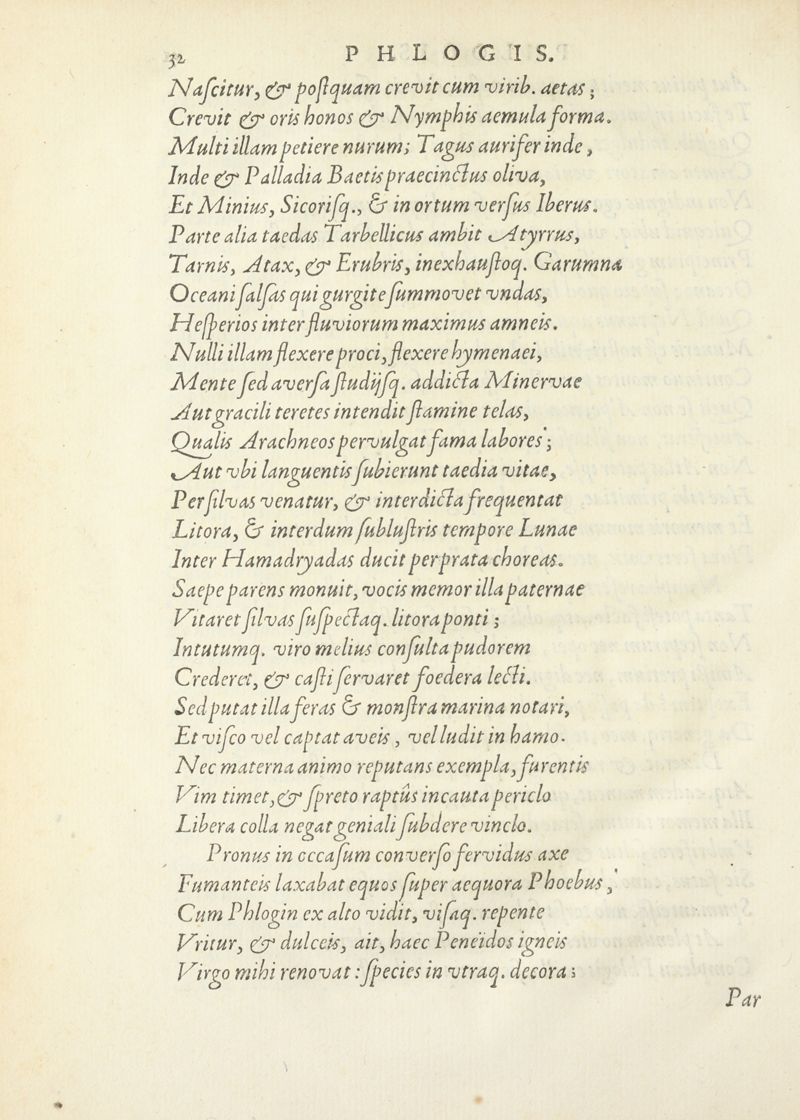 32 PHLOGIS.
Naſcitur, & poſtquam crevit cum virib. aetas;
Crevit & oris honos & Nymphis aemula forma.
Multi illam petiere nurum; Tagus aurifer inde,
Inde & Palladia Baetis praecinctus oliva,
Et Minius, Sicoriſq., & in ortum verſus Iberus.
Parte alia taedas Tarbellicus ambit Atyrrus,
Tarnis, Atax, & Erubris, inexhauſtoq. Garumna
Oceani ſalſas qui gurgite ſummovet vndas,
Heſperios inter fluviorum maximus amneis.
Nulli illam flexere proci, flexere hymenaei,
Mente ſed averſa ſtudijſq. addicta Minervae
Aut gracili teretes intendit ſtamine telas,
Qualis Arachneos pervulgat fama labores;
Aut vbi languentis ſubierunt taedia vitae,
Per ſilvas venatur, & interdicta frequentat
Litora, & interdum ſubluſtris tempore Lunae
Inter Hamadryadas ducit per prata choreas.
Saepe parens monuit, vocis memor illa paternae
Vitaret ſilvas ſuſpectaq. litora ponti;
Intutumq. viro melius conſulta pudorem
Crederet, & caſti ſervaret foedera lecti.
Sed putat illa feras & monſtra marina notari,
Et viſco vel captat aveis, vel ludit in hamo.
Nec materna animo reputans exempla, furentis
Vim timet, & ſpreto raptûs incauta periclo
Libera colla negat geniali ſubdere vinclo.
Pronus in occaſum converſo fervidus axe
Fumanteis laxabat equos ſuper aequora Phoebus,
Cum Phlogin ex alto vidit, viſaq. repente
Vritur, & dulceis, ait, haec Peneïdos igneis
Virgo mihi renovat: ſpecies in vtraq. decora;
Par